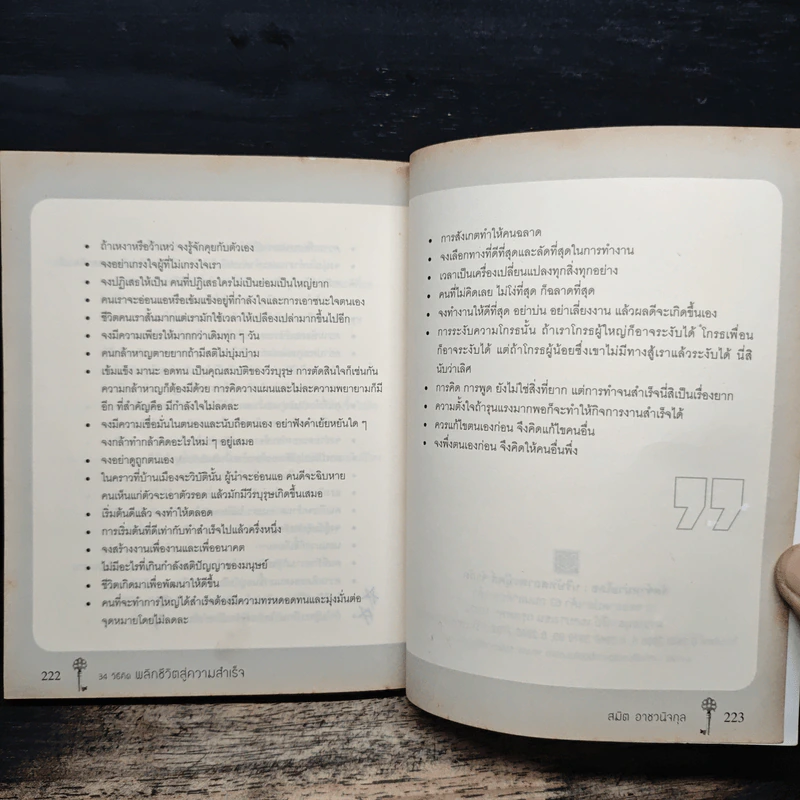 • ถ้าเหงาหรือว้าเหว่ จงรู้จักคุยกับตัวเอง
• จงอย่าเกรงใจผู้ที่ไม่เกรงใจเรา
• จงปฏิเสธให้เป็น คนที่ปฏิเสธใครไม่เป็นย่อมเป็นใหญ่ยาก
• คนเราจะอ่อนแอหรือเข้มแข็งอยู่ที่กำลังใจและการเอาชนะใจตนเอง
• ชีวิตคนเราสั้นมากแต่เรามักใช้เวลาให้เปลืองเปล่ามากขึ้นไปอีก
• จงมีความเพียรให้มากกว่าเดิมทุก ๆ วัน
• คนกล้าหาญตายยากถ้ามีสติไม่บุ่มบ่าม
• เข้มแข็ง มานะ อดทน เป็นคุณสมบัติของวีรบุรุษ การตัดสินใจก็เช่นกัน
ความกล้าหาญก็ต้องมีด้วย การคิดวางแผนและไม่ละความพยายามก็มี
อีก ที่สำคัญคือ มีกำลังใจไม่ลดละ
• จงมีความเชื่อมั่นในตนเองและนับถือตนเอง อย่าฟังคำเย้ยหยันใด ๆ
จงกล้าทำกล้าคิดอะไรใหม่ ๆ อยู่เสมอ
• จงอย่าดูถูกตนเอง
• ในคราวที่บ้านเมืองจะวิบัตินั้น ผู้นำจะอ่อนแอ คนดีจะฉิบหาย
คนเห็นแก่ตัวจะเอาตัวรอด แล้วมักมีวีรบุรุษเกิดขึ้นเสมอ
• เริ่มต้นดีแล้ว จงทำให้ตลอด
• การเริ่มต้นที่ดีเท่ากับทำสำเร็จไปแล้วครึ่งหนึ่ง
• จงสร้างงานเพื่องานและเพื่ออนาคต
• ไม่มีอะไรที่เกินกำลังสติปัญญาของมนุษย์
• ชีวิตเกิดมาเพื่อพัฒนาให้ดีขึ้น
• คนที่จะทำการใหญ่ได้สำเร็จต้องมีความทรหดอดทนและมุ่งมั่นต่อ
จุดหมายโดยไม่ลดละ
222 34 วิธีคิด พลิกชีวิตสู่ความสำเร็จ
• การสังเกตทำให้คนฉลาด
• จงเลือกทางที่ดีที่สุดและลัดที่สุดในการทำงาน
• เวลาเป็นเครื่องเปลี่ยนแปลงทุกสิ่งทุกอย่าง
• คนที่ไม่คิดเลย ไม่โง่ที่สุด ก็ฉลาดที่สุด
• จงทำงานให้ดีที่สุด อย่าบ่น อย่าเลี่ยงงาน แล้วผลดีจะเกิดขึ้นเอง
• การระงับความโกรธนั้น ถ้าเราโกรธผู้ใหญ่ก็อาจระงับได้ โกรธเพื่อน
ก็อาจระงับได้ แต่ถ้าโกรธผู้น้อยซึ่งเขาไม่มีทางสู้เราแล้วระงับได้ นี่สิ
นับว่าเลิศ
• การคิด การพูด ยังไม่ใช่สิ่งที่ยาก แต่การทำจนสำเร็จนี่สิเป็นเรื่องยาก
• ความตั้งใจถ้ารุนแรงมากพอก็จะทำให้กิจการงานสำเร็จได้
• ควรแก้ไขตนเองก่อน จึงคิดแก้ไขคนอื่น
• จงพึ่งตนเองก่อน จึงคิดให้คนอื่นพึ่ง
สมิต อาชวนิจกุล 223